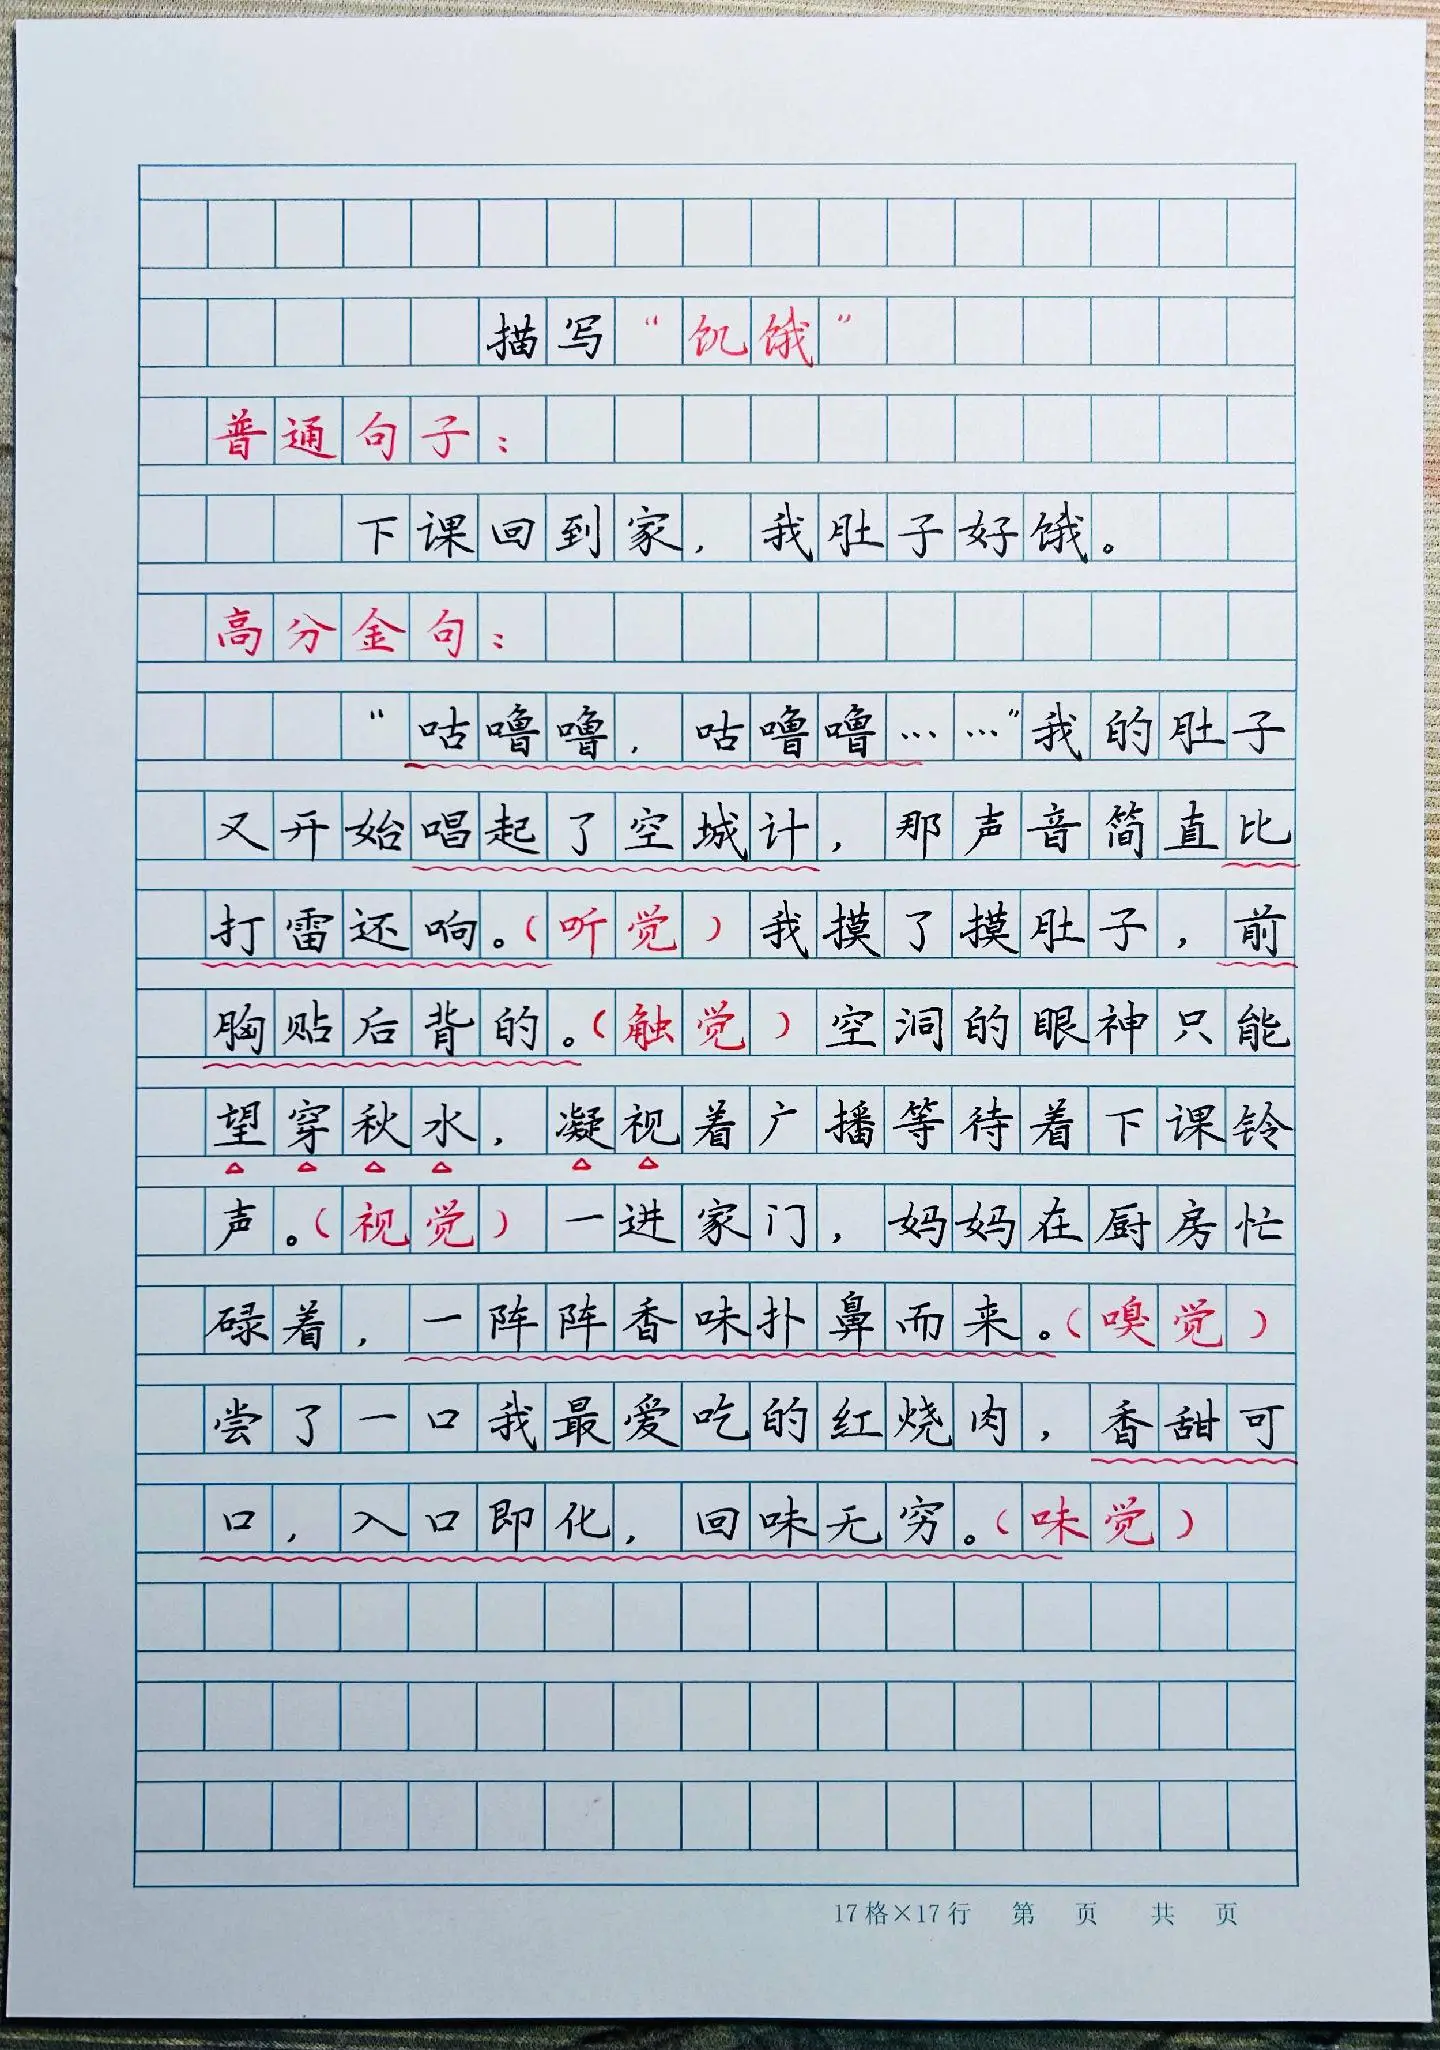 描写“饥饿”
普通句子：
下课回到家，我肚子好饿。
高分金句：
“咕噜噜，咕噜噜……”我的肚子
又开始唱起了空城计，那声音简直比
打雷还响。（听觉）我摸了摸肚子，前
胸贴后背的。（触觉）空洞的眼神只能
望穿秋水，凝视着广播等待着下课铃
声。（视觉）一进家门，妈妈在厨房忙
碌着，一阵阵香味扑鼻而来。（嗅觉）
尝了一口我最爱吃的红烧肉，香甜可
口，入口即化，回味无穷。（味觉）
17格×17行 第 页 共 页